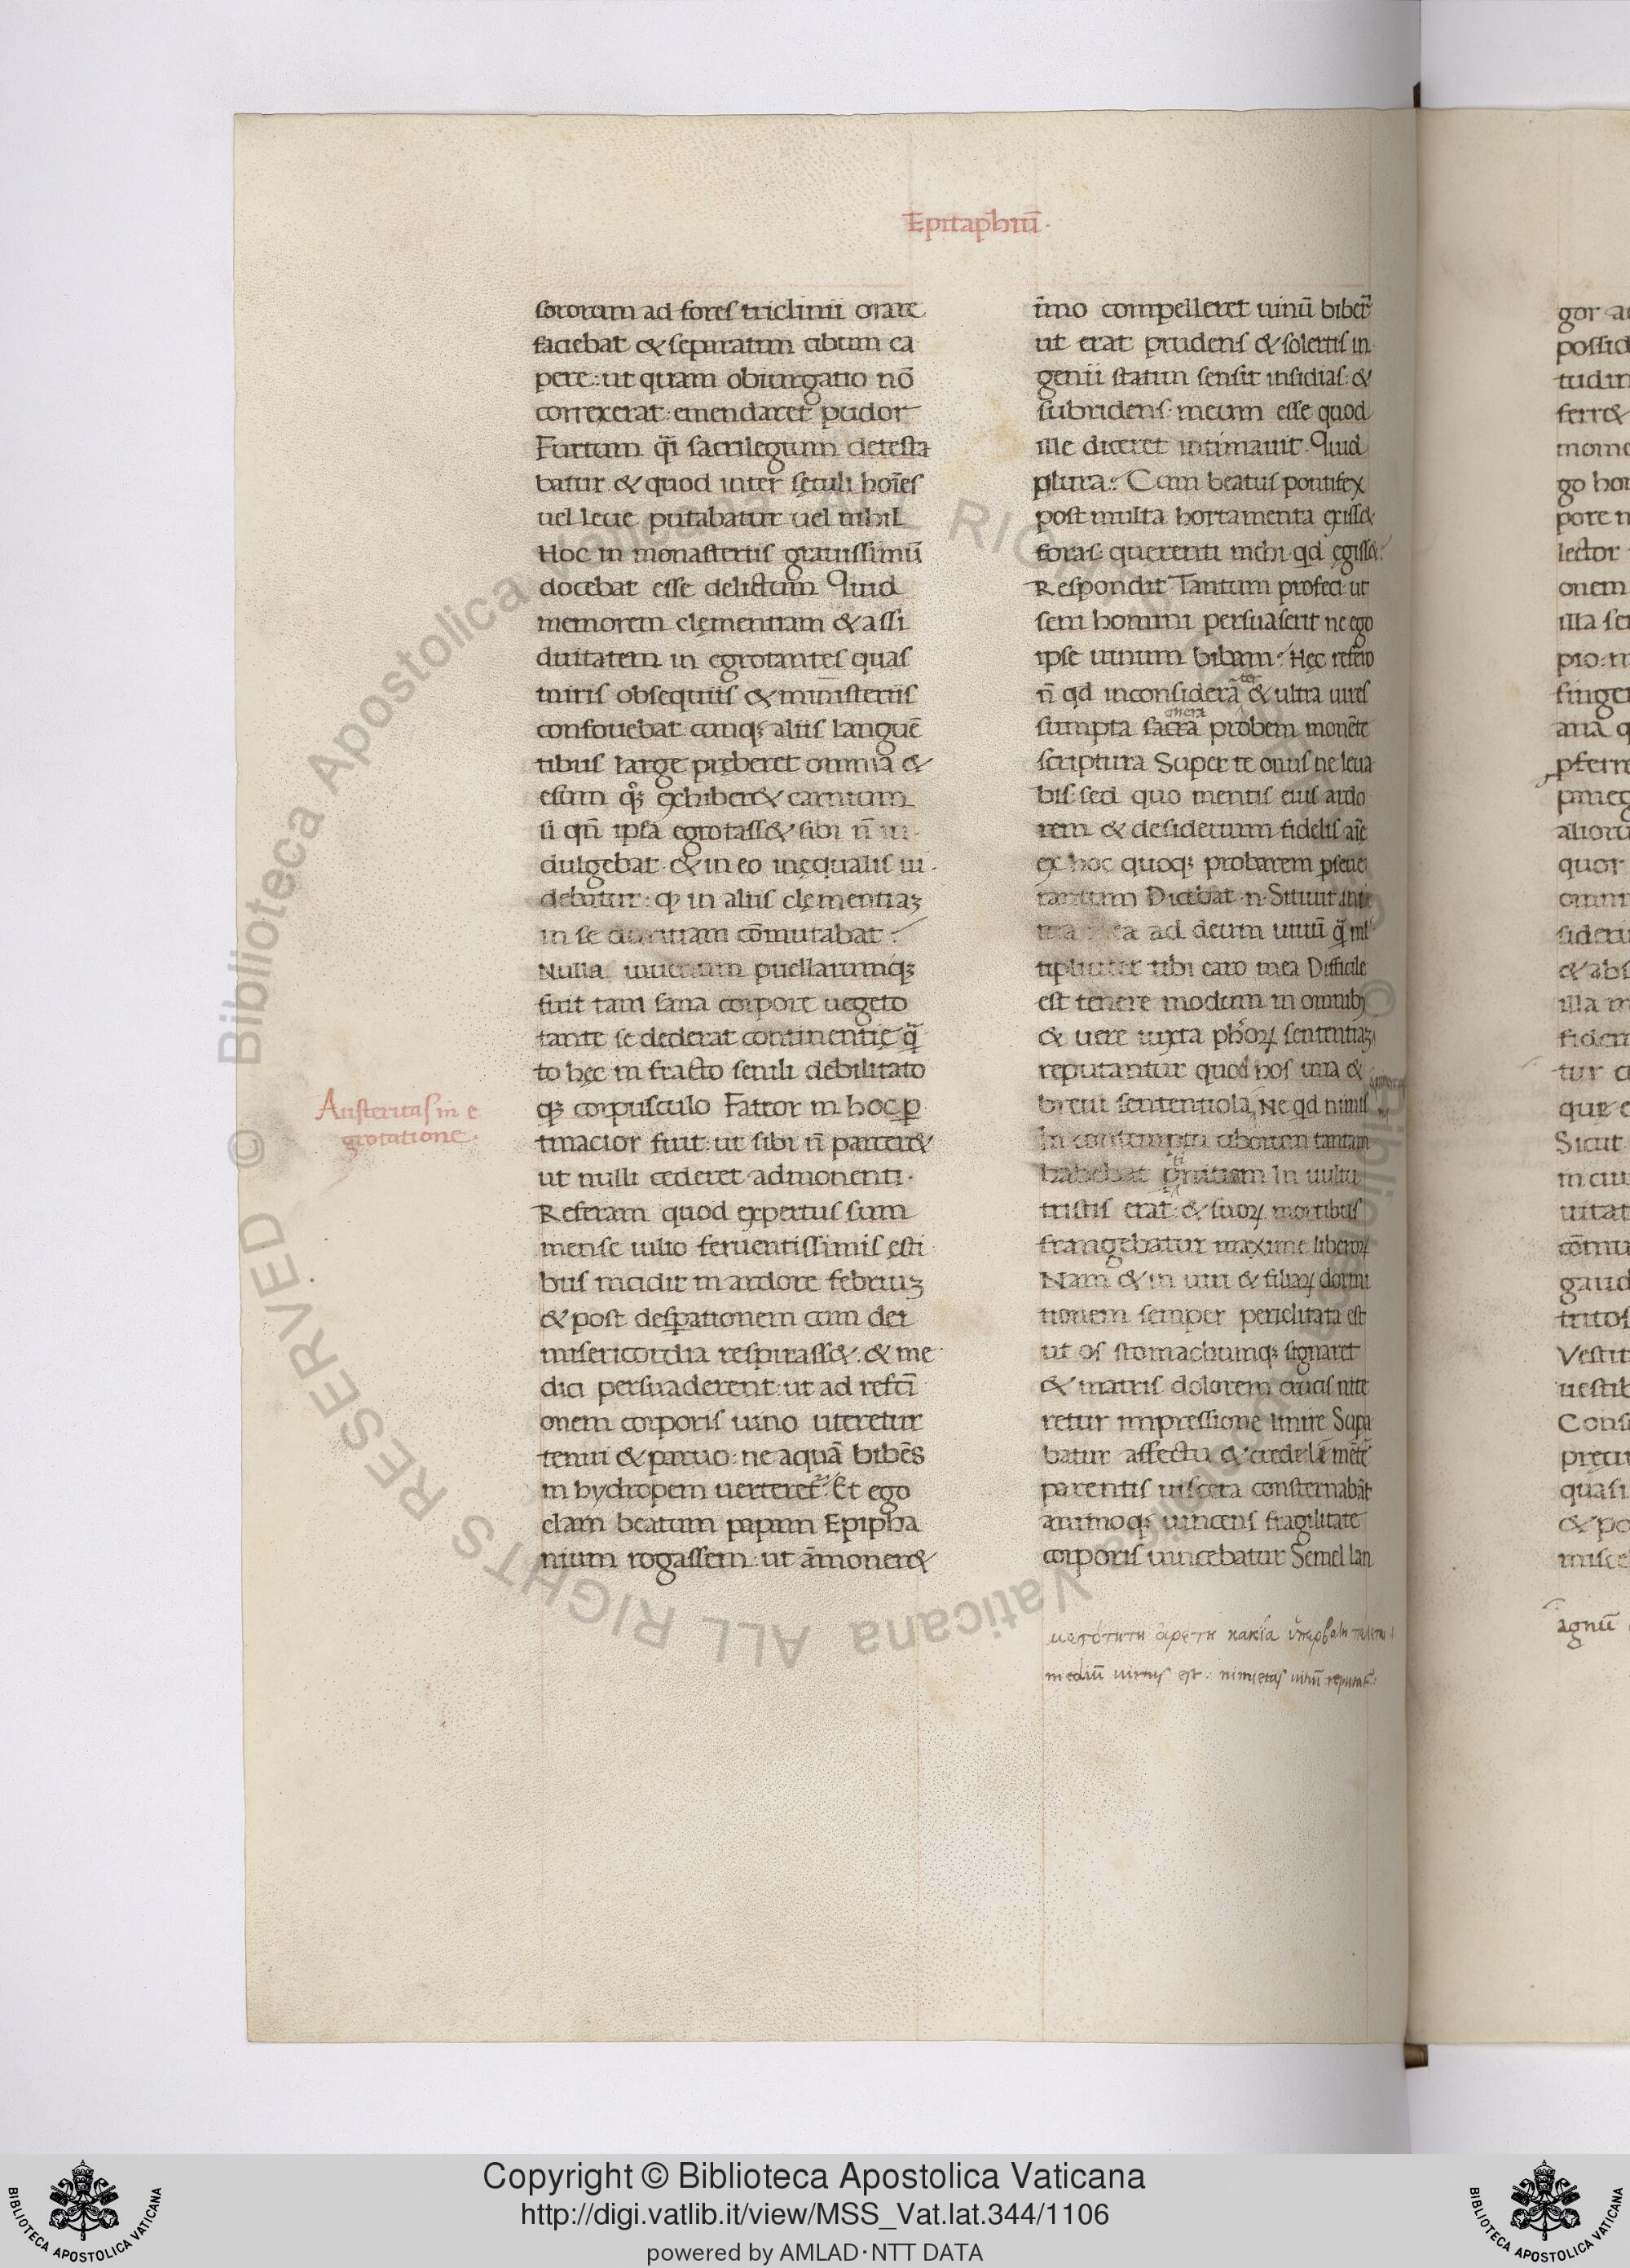 Epitaphiū·
sororum ad fores triclinii orare
faciebat & separatim cibum ca
pere: ut quam obiurgatio nō
correxerat: emendaret pudor
Furtum q̄si sacrilegium detesta
batur & quod inter sęculi hoīes
uel leue putabatur uel nihil
Hoc in monasteriis grauissimū
docebat esse delictum Quid
memorem clęmentiam & assi
duitatem in egrotantes quas
miris obsequiis & ministeriis
confouebat cunq; aliis languē
tibus large pręberet omnia &
esum q̊; exhiber& carnium
si qn̄ ipsa egrotass& sibi n̄ in
dulgebat & in eo inęqualis ui
debatur: q in aliis clęmentiaȝ
in se duritiam cōmutabat:
Nulla iuuenum puellarumq;
fuit tam sana corpore uegeto
tantę se dederat continentię q̄
to hęc in fracto senili debilitato
q; corpusculo Fateor in hoc ꝑ
tinacior fuit: ut sibi n̄ parcer&
ut nulli cederet admonenti·
Referam quod expertus sum
mense iulio feruentissimis ęsti
bus incidit in ardore febriuȝ
& post desꝑationem cum dei
misericordia respirass&: & me
dici persuaderent: ut ad refcī
onem corporis uino uteretur
tenui & paruo: ne aquā bibēs
in hydropem uerteret̃: Et ego
clam beatum papam Epipha
nium rogassem: ut āmoner&
Austeritas in e
grotatione·
īmo compelleret uinū biber̃
ut erat prudens & solertis in
genii statim sensit insidias: &
subridens meum esse quod
ille diceret intimauit· Quid
plura: Cum beatus pontifex
post multa hortamenta exiss&
foras: querenti mihi qd ęgiss&:
Respondit Tantum profeci: ut
seni homini persuaserit ne ego
ipse uinum bibam: Hęc refero
n̄ qd inconsiderā ter & ultra uires
sumpta sacra onera probem monēte
scriptura Super te onus ne leua
bis: sed quo mentis eius ardo
rem & desiderium fidelis aīe
ex hoc quoq; probarem pseue
rantium Dicebat n Sitiuit anima
mea ad deum uiuū q̄ ml
tipliciter tibi caro mea Difficile
est tenere modum in omnibꝫ
& uere iuxta phorꝝ sententiaȝ
reputantur quod nos una &
breui sententiola Ne qd nimis
In contemptu ciborum tantam
habebat In uultu
tristis erat & suorꝝ mortibus
frangebatur maxime liberorꝝ
Nam & in uiri & filiarꝝ dormi
tionem semper periclitata est
ut os stomachumq; signaret
& matris dolorem crucis nite
retur impressione linire Supa
batur affectu & credulē mētē
parentis uiscera consternabāt
animoq; uincens fragilitate
corporis uincebatur Semel lan
mediū uirtus est: nimietas uitiū reputat̃
Copyright © Biblioteca Apostolica Vaticana
http://digi.vatlib.it/view/MSS_Vat.lat.344/1106
powered by AMLAD·NTT DATA
© Biblioteca Apostolica Vaticana ALL RIGHTS RESERVED
BIBLIOTECA APOSTOLICA VATICANA
BIBLIOTECA APOSTOLICA VATICANA